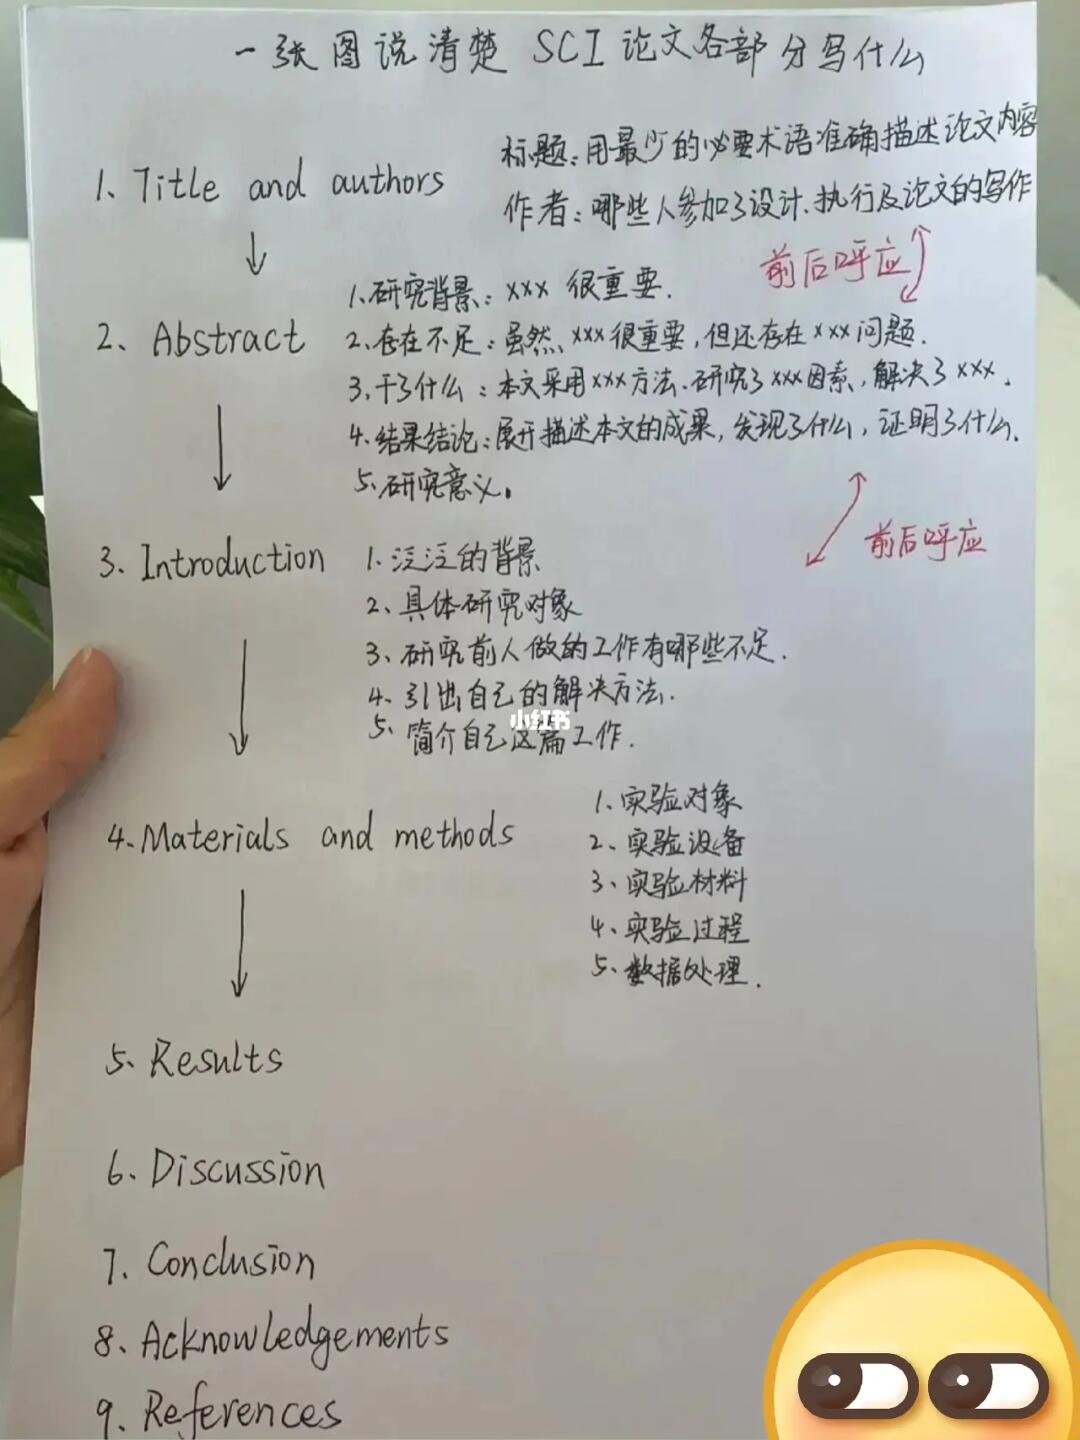 一张图说清楚 SCI 论文各部分写什么
1、Title and authors
标题：用最少的必要术语准确描述论文内容
作者：哪些人参加了设计、执行及论文的写作
前后呼应
2、Abstract
1、研究背景：xxx 很重要.
2、存在不足：虽然、xxx很重要，但还存在xxx问题.
3、干了什么：本文采用xxx方法、研究了xxx因素，解决了xxx.
4、结果结论：展开描述本文的成果，发现了什么，证明了什么.
5、研究意义。
前后呼应
3、Introduction
1、泛泛的背景
2、具体研究对象
3、研究前人做的工作有哪些不足.
4、引出自己的解决方法.
小红书
5、简介自己这篇工作.
4、Materials and methods
1、实验对象
2、实验设备
3、实验材料
4、实验过程
5、数据处理.
5、Results
6、Discussion
7、Conclusion
8、Acknowledgements
9、References